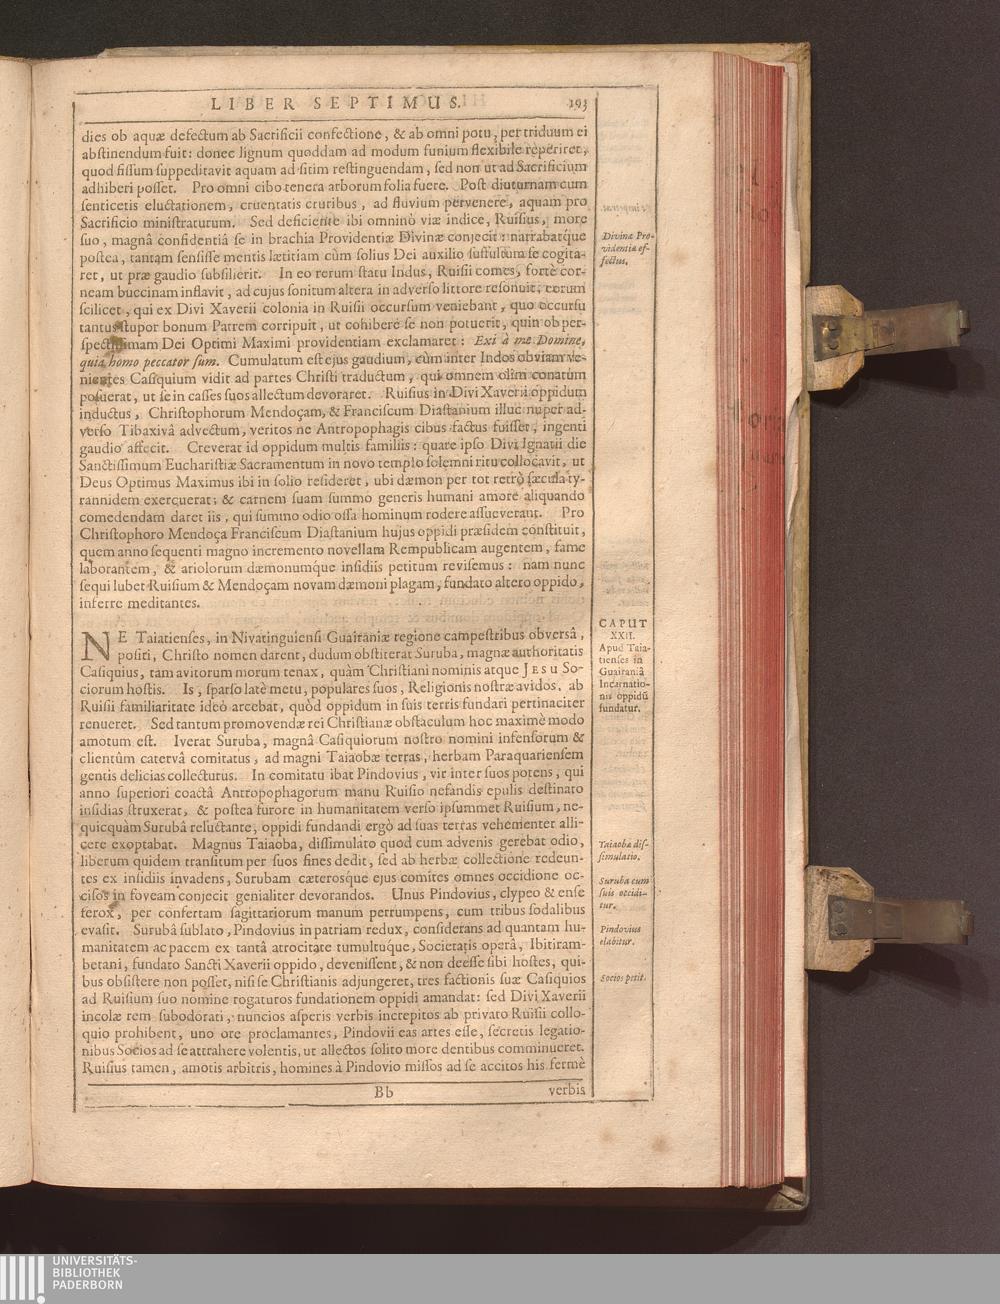 LIBER SEPTIMUS. 193
dies ob aquæ defectum ab Sacrificii confectione, & ab omni potu, per triduum ei
abstinendum fuit: donec lignum quoddam ad modum funium flexibile reperiret,
quod fissum suppeditavit aquam ad sitim restinguendam, sed non ut ad Sacrificium
adhiberi posset. Pro omni cibo tenera arborum folia fuere. Post diuturnam cum
senticetis eluctationem, cruentatis cruribus, ad fluvium pervenere, aquam pro
Sacrificio ministraturum. Sed deficiente ibi omninò viæ indice, Ruisius, more
suo, magnâ confidentiâ se in brachia Providentiæ Divinæ conjecit: narrabatque
postea, tantam sensisse mentis lætitiam cùm solius Dei auxilio suffultum se cogita-
ret, ut præ gaudio subsilierit. In eo rerum statu Indus, Ruisii comes, fortè cor-
neam buccinam inflavit, ad cujus sonitum altera in adverso littore resonuit; eorum
scilicet, qui ex Divi Xaverii colonia in Ruisii occursum veniebant, quo occursu
tantus stupor bonum Patrem corripuit, ut cohibere se non potuerit, quin ob per-
spectissimam Dei Optimi Maximi providentiam exclamaret: Exi à me Domine,
quia homo peccator sum. Cumulatum est ejus gaudium, cùm inter Indos obviam ve-
nientes Casiquium vidit ad partes Christi traductum, qui omnem olim conatum
posuerat, ut se in casses suos allectum devoraret. Ruisius in Divi Xaverii oppidum
inductus, Christophorum Mendoçam, & Franciscum Diastanium illuc nuper ad-
verso Tibaxivâ advectum, veritos ne Antropophagis cibus factus fuisset, ingenti
gaudio affecit. Creverat id oppidum multis familiis: quare ipso Divi Ignatii die
Sanctissimum Eucharistiæ Sacramentum in novo templo solemni ritu collocavit, ut
Deus Optimus Maximus ibi in solio resideret, ubi dæmon per tot retrò sæcula ty-
rannidem exercuerat; & carnem suam summo generis humani amore aliquando
comedendam daret iis, qui summo odio ossa hominum rodere assueverant. Pro
Christophoro Mendoça Franciscum Diastanium hujus oppidi præsidem constituit,
quem anno sequenti magno incremento novellam Rempublicam augentem, fame
laborantem, & ariolorum dæmonumque insidiis petitum revisemus: nam nunc
sequi lubet Ruisium & Mendoçam novam dæmoni plagam, fundato altero oppido,
inferre meditantes.
Divinæ Pro-
videntiæ ef-
fectus.
CAPUT
XXII.
Apud Taia-
tienses in
Guairaniâ
Incarnatio-
nis oppidũ
fundatur.
NE Taiatienses, in Nivatinguiensi Guairaniæ regione campestribus obversâ,
positi, Christo nomen darent, dudum obstiterat Suruba, magnæ authoritatis
Casiquius, tam avitorum morum tenax, quàm Christiani nominis atque JESU So-
ciorum hostis. Is, sparso latè metu, populares suos, Religionis nostræ avidos, ab
Ruisii familiaritate ideò arcebat, quòd oppidum in suis terris fundari pertinaciter
renueret. Sed tantum promovendæ rei Christianæ obstaculum hoc maximè modo
amotum est. Iverat Suruba, magnâ Casiquiorum nostro nomini infensorum &
clientûm catervâ comitatus, ad magni Taiaobæ terras, herbam Paraquariensem
gentis delicias collecturus. In comitatu ibat Pindovius, vir inter suos potens, qui
anno superiori coactâ Antropophagorum manu Ruisio nefandis epulis destinato
insidias struxerat, & postea furore in humanitatem verso ipsummet Ruisium, ne-
quicquàm Surubâ reluctante, oppidi fundandi ergò ad suas terras vehementer alli-
cere exoptabat. Magnus Taiaoba, dissimulato quod cum advenis gerebat odio,
liberum quidem transitum per suos fines dedit, sed ab herbæ collectione redeun-
tes ex insidiis invadens, Surubam cæterosque ejus comites omnes occidione oc-
cisos in foveam conjecit genialiter devorandos. Unus Pindovius, clypeo & ense
ferox, per confertam sagittariorum manum perrumpens, cum tribus sodalibus
evasit. Surubâ sublato, Pindovius in patriam redux, considerans ad quantam hu-
manitatem ac pacem ex tantâ atrocitate tumultuque, Societatis operâ, Ibitiram-
betani, fundato Sancti Xaverii oppido, devenissent, & non deesse sibi hostes, qui-
bus obsistere non posset, nisi se Christianis adjungeret, tres factionis suæ Casiquios
ad Ruisium suo nomine rogaturos fundationem oppidi amandat: sed Divi Xaverii
incolæ rem subodorati, nuncios asperis verbis increpitos ab privato Ruisii collo-
quio prohibent, uno ore proclamantes, Pindovii eas artes esse, secretis legatio-
nibus Socios ad se attrahere volentis, ut allectos solito more dentibus comminueret.
Ruisius tamen, amotis arbitris, homines à Pindovio missos ad se accitos his fermè
Taiaobæ dis-
simulatio.
Suruba cum
suis occidi-
tur.
Pindovius
elabitur.
Socios petit.
Bb verbis
UNIVERSITÄTS-
BIBLIOTHEK
PADERBORN